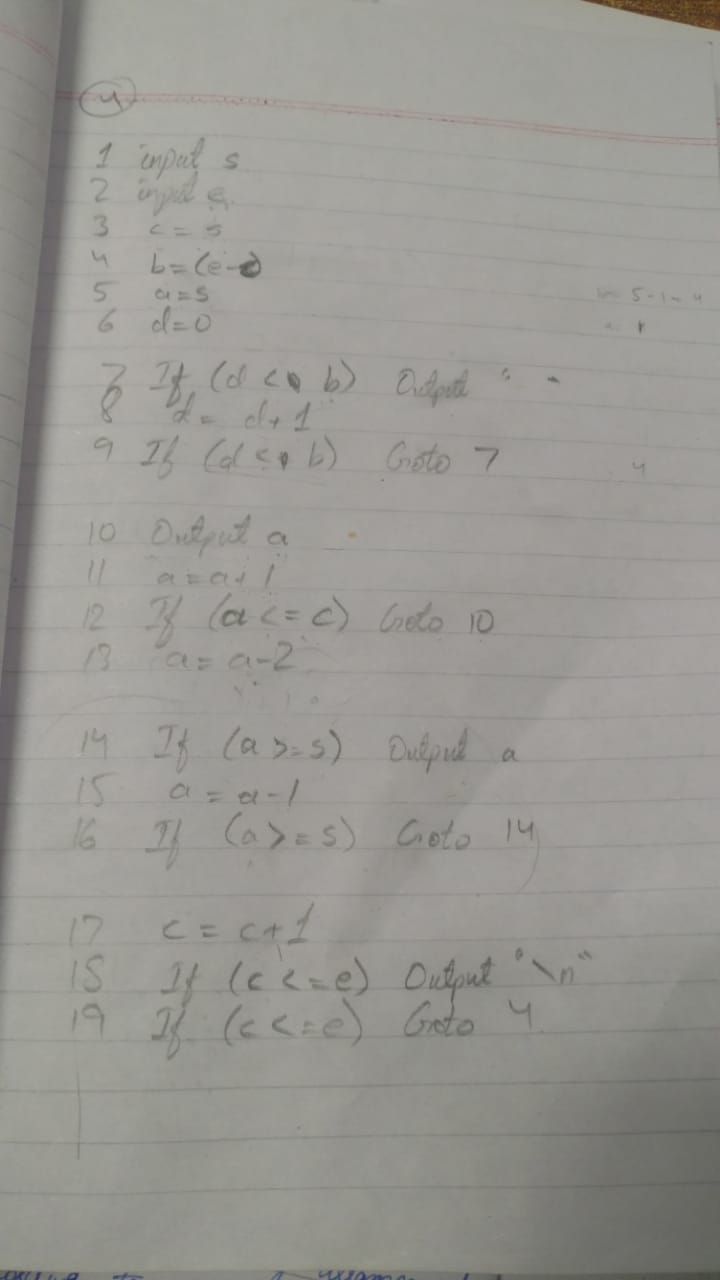 4
1 input s
2 input e
3 c = s
4 b = (e-c)
5 a = s
6 d = 0
7 If (d < b) Output " "
8 d = d+1
9 If (d < b) Goto 7
10 Output a
11 a = a+1
12 If (a <= c) Goto 10
13 a = a-2
14 If (a >= s) Output a
15 a = a-1
16 If (a >= s) Goto 14
17 c = c+1
18 If (c <= e) Output "\n"
19 If (c <= e) Goto 4
5-1=4
4